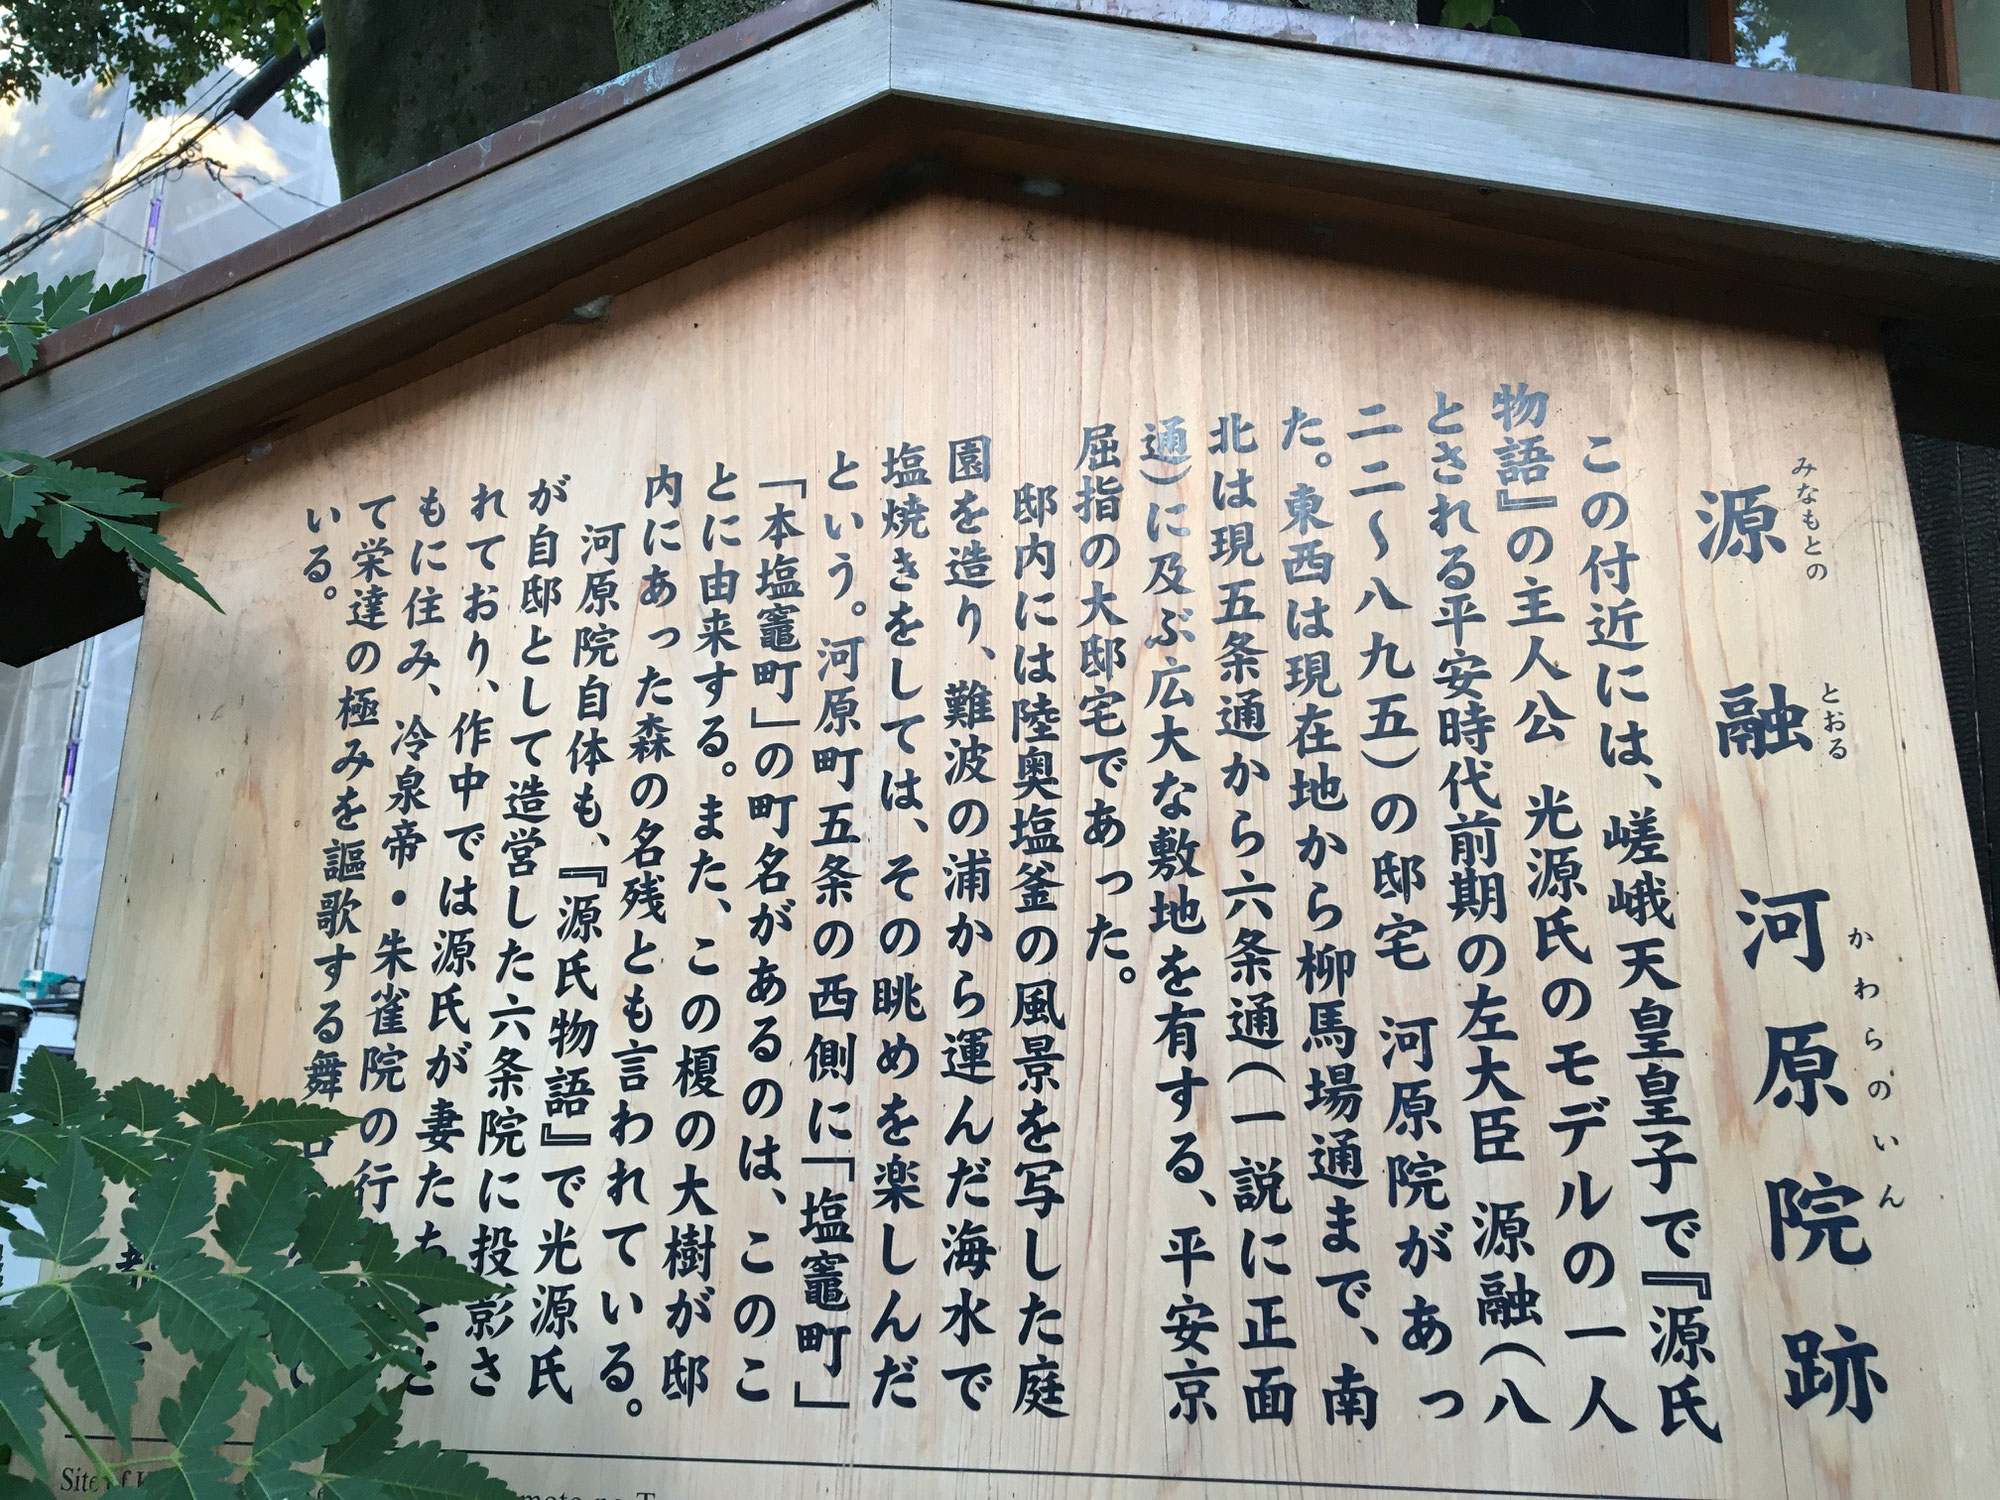 源融河原院跡
みなもとの とおる かわらのいん
この付近には、嵯峨天皇皇子で『源氏
物語』の主人公 光源氏のモデルの一人
とされる平安時代前期の左大臣 源融(八
二二〜八九五)の邸宅 河原院があっ
た。東西は現在地から柳馬場通まで、南
北は現五条通から六条通(一説に正面
通)に及ぶ広大な敷地を有する、平安京
屈指の大邸宅であった。
邸内には陸奥塩釜の風景を写した庭
園を造り、難波の浦から運んだ海水で
塩焼きをしては、その眺めを楽しんだ
という。河原町五条の西側に「塩竈町」
「本塩竈町」の町名があるのは、このこ
とに由来する。また、この榎の大樹が邸
内にあった森の名残とも言われている。
河原院自体も、『源氏物語』で光源氏
が自邸として造営した六条院に投影さ
れており、作中では源氏が妻たちとと
もに住み、冷泉帝・朱雀院の行
て栄達の極みを謳歌する舞
いる。
Site of